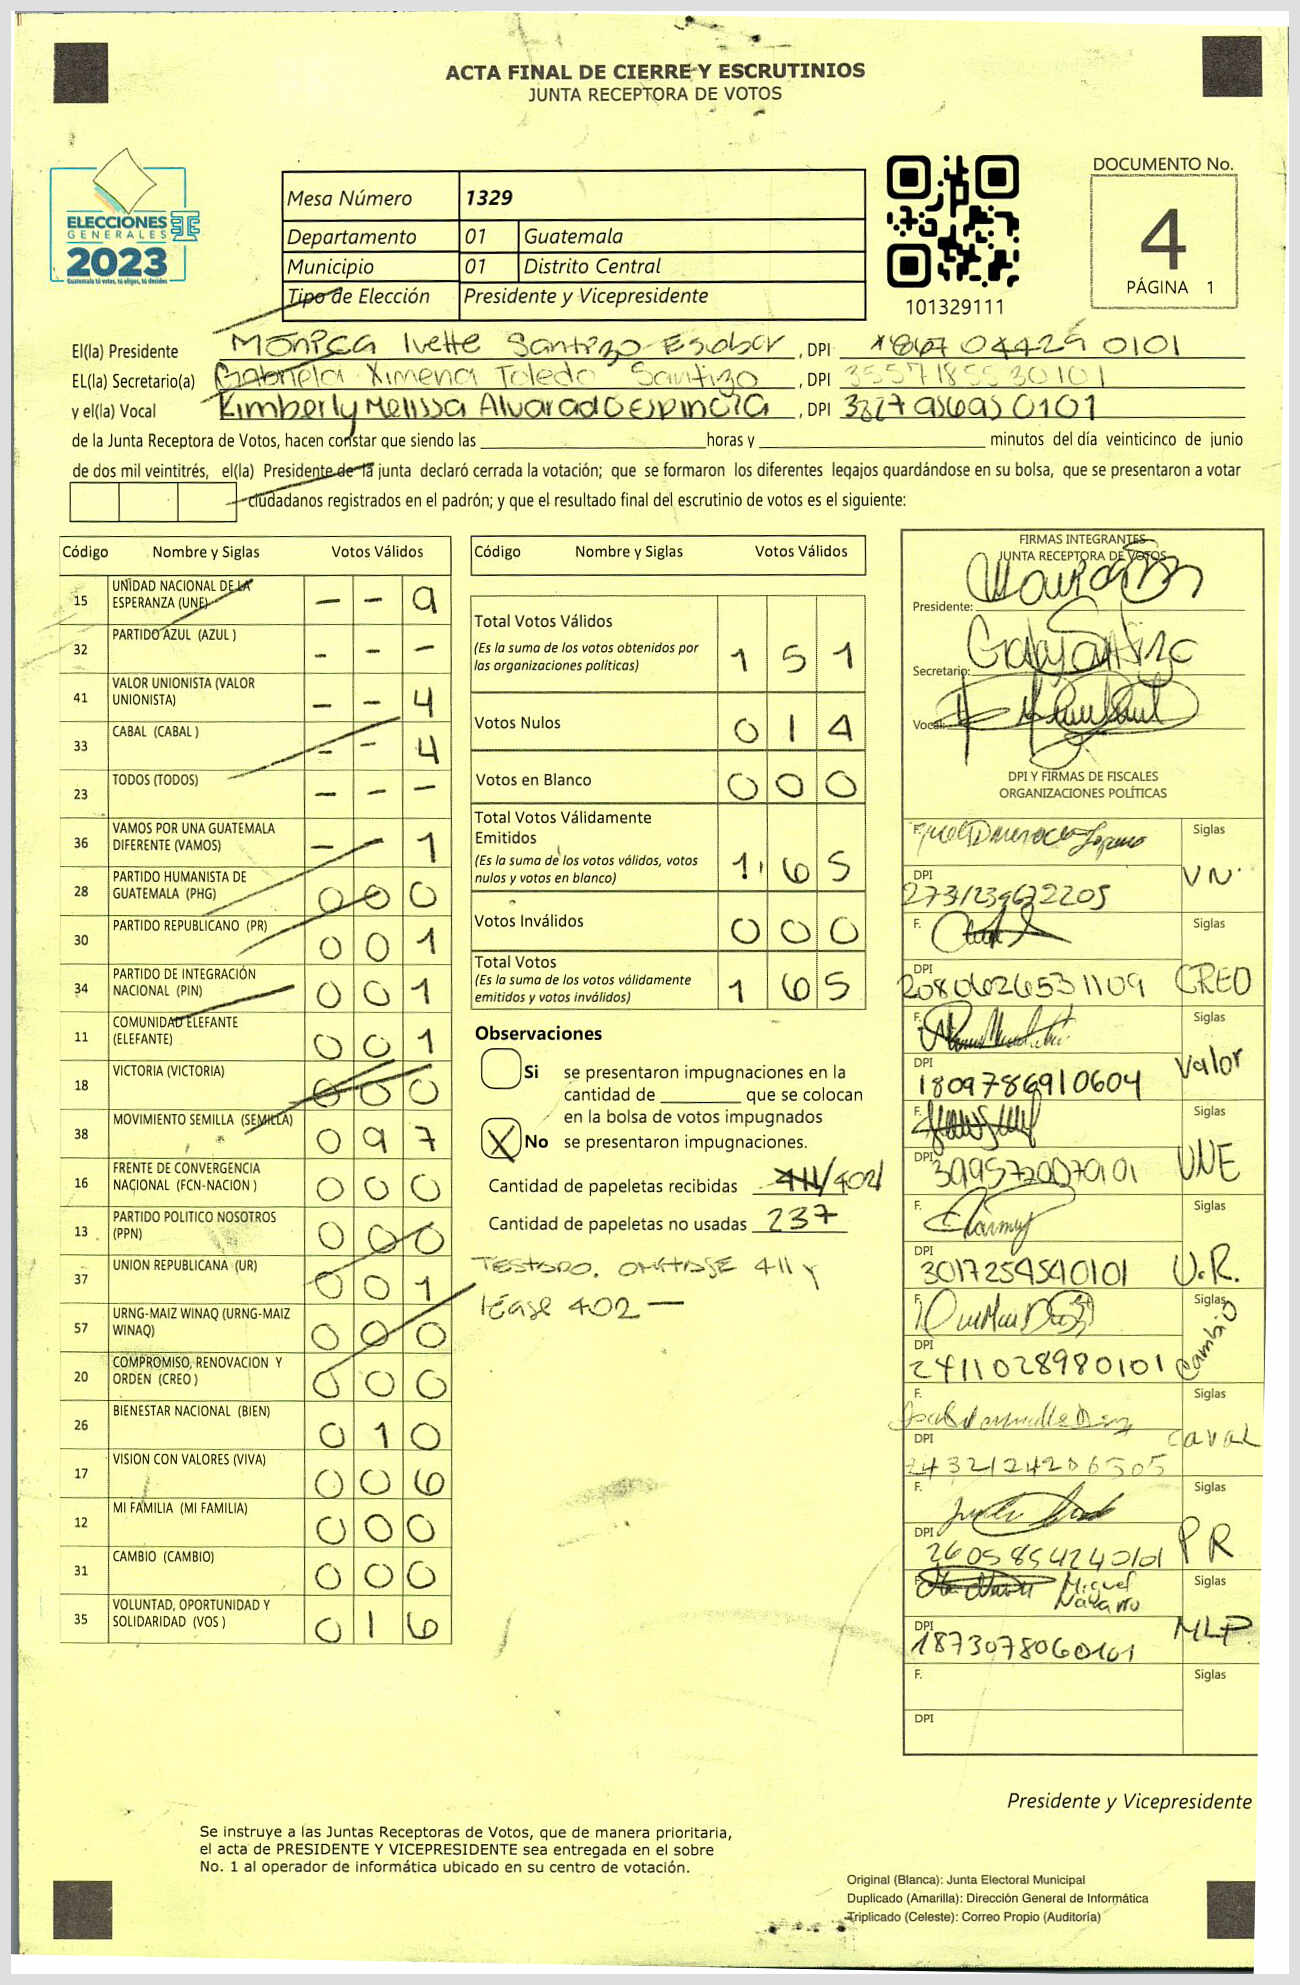 ACTA FINAL DE CIERRE Y ESCRUTINIOS
JUNTA RECEPTORA DE VOTOS
ELECCIONES
GENERALES
2023
Guatemala tú votas, tú eliges, tú decides
Mesa Número 1329
Departamento 01 Guatemala
Municipio 01 Distrito Central
Tipo de Elección Presidente y Vicepresidente
101329111
DOCUMENTO No.
4
PÁGINA 1
El(la) Presidente Monica Ivette Santizo Escobar , DPI 0101
EL(la) Secretario(a) Gabriela Ximena Toledo Santizo , DPI 3557185530101
y el(la) Vocal Kimberly Melissa Alvarado Espincia , DPI 0101
de la Junta Receptora de Votos, hacen constar que siendo las horas y minutos del día veinticinco de junio
de dos mil veintitrés, el(la) Presidente de la junta declaró cerrada la votación; que se formaron los diferentes legajos guardándose en su bolsa, que se presentaron a votar
ciudadanos registrados en el padrón; y que el resultado final del escrutinio de votos es el siguiente:
Código Nombre y Siglas Votos Válidos
15 UNIDAD NACIONAL DE LA ESPERANZA (UNE) - - 9
32 PARTIDO AZUL (AZUL ) - - -
41 VALOR UNIONISTA (VALOR UNIONISTA) - - 4
33 CABAL (CABAL ) - - 4
23 TODOS (TODOS) - - -
36 VAMOS POR UNA GUATEMALA DIFERENTE (VAMOS) - - 1
28 PARTIDO HUMANISTA DE GUATEMALA (PHG) 0 0 0
30 PARTIDO REPUBLICANO (PR) 0 0 1
34 PARTIDO DE INTEGRACIÓN NACIONAL (PIN) 0 0 1
11 COMUNIDAD ELEFANTE (ELEFANTE) 0 0 1
18 VICTORIA (VICTORIA) 0 0 0
38 MOVIMIENTO SEMILLA (SEMILLA) 0 9 7
16 FRENTE DE CONVERGENCIA NACIONAL (FCN-NACION ) 0 0 0
13 PARTIDO POLITICO NOSOTROS (PPN) 0 0 0
37 UNION REPUBLICANA (UR) 0 0 1
57 URNG-MAIZ WINAQ (URNG-MAIZ WINAQ) 0 0 0
20 COMPROMISO, RENOVACION Y ORDEN (CREO ) 0 0 0
26 BIENESTAR NACIONAL (BIEN) 0 1 0
17 VISION CON VALORES (VIVA) 0 0 6
12 MI FAMILIA (MI FAMILIA) 0 0 0
31 CAMBIO (CAMBIO) 0 0 0
35 VOLUNTAD, OPORTUNIDAD Y SOLIDARIDAD (VOS ) 0 1 6
Código Nombre y Siglas Votos Válidos
Total Votos Válidos 1 5 1
(Es la suma de los votos obtenidos por
las organizaciones políticas)
Votos Nulos 0 1 4
Votos en Blanco 0 0 0
Total Votos Válidamente
Emitidos 1 6 5
(Es la suma de los votos válidos, votos
nulos y votos en blanco)
Votos Inválidos 0 0 0
Total Votos 1 6 5
(Es la suma de los votos válidamente
emitidos y votos inválidos)
Observaciones
Si se presentaron impugnaciones en la
cantidad de que se colocan
en la bolsa de votos impugnados
X No se presentaron impugnaciones.
Cantidad de papeletas recibidas 411/402
Cantidad de papeletas no usadas 237
Testado. omitase 411 y
léase 402 —
FIRMAS INTEGRANTES
JUNTA RECEPTORA DE VOTOS
Presidente:
Secretario:
Vocal:
DPI Y FIRMAS DE FISCALES
ORGANIZACIONES POLÍTICAS
F. Siglas
DPI VN.
2731239672205
F. Siglas
DPI CREO
2080626531109
F. Siglas
DPI Valor
1809786910604
F. Siglas
DPI UNE
F. Siglas
DPI U.R.
3017259540101
F. Siglas
DPI Cambio
2411028980101
F. Siglas
DPI Caval
2432124206505
F. Siglas
DPI PR
2605854240101
F. Miguel Navarro Siglas
DPI MLP
1873078060101
F. Siglas
DPI
Presidente y Vicepresidente
Se instruye a las Juntas Receptoras de Votos, que de manera prioritaria,
el acta de PRESIDENTE Y VICEPRESIDENTE sea entregada en el sobre
No. 1 al operador de informática ubicado en su centro de votación.
Original (Blanca): Junta Electoral Municipal
Duplicado (Amarilla): Dirección General de Informática
Triplicado (Celeste): Correo Propio (Auditoría)